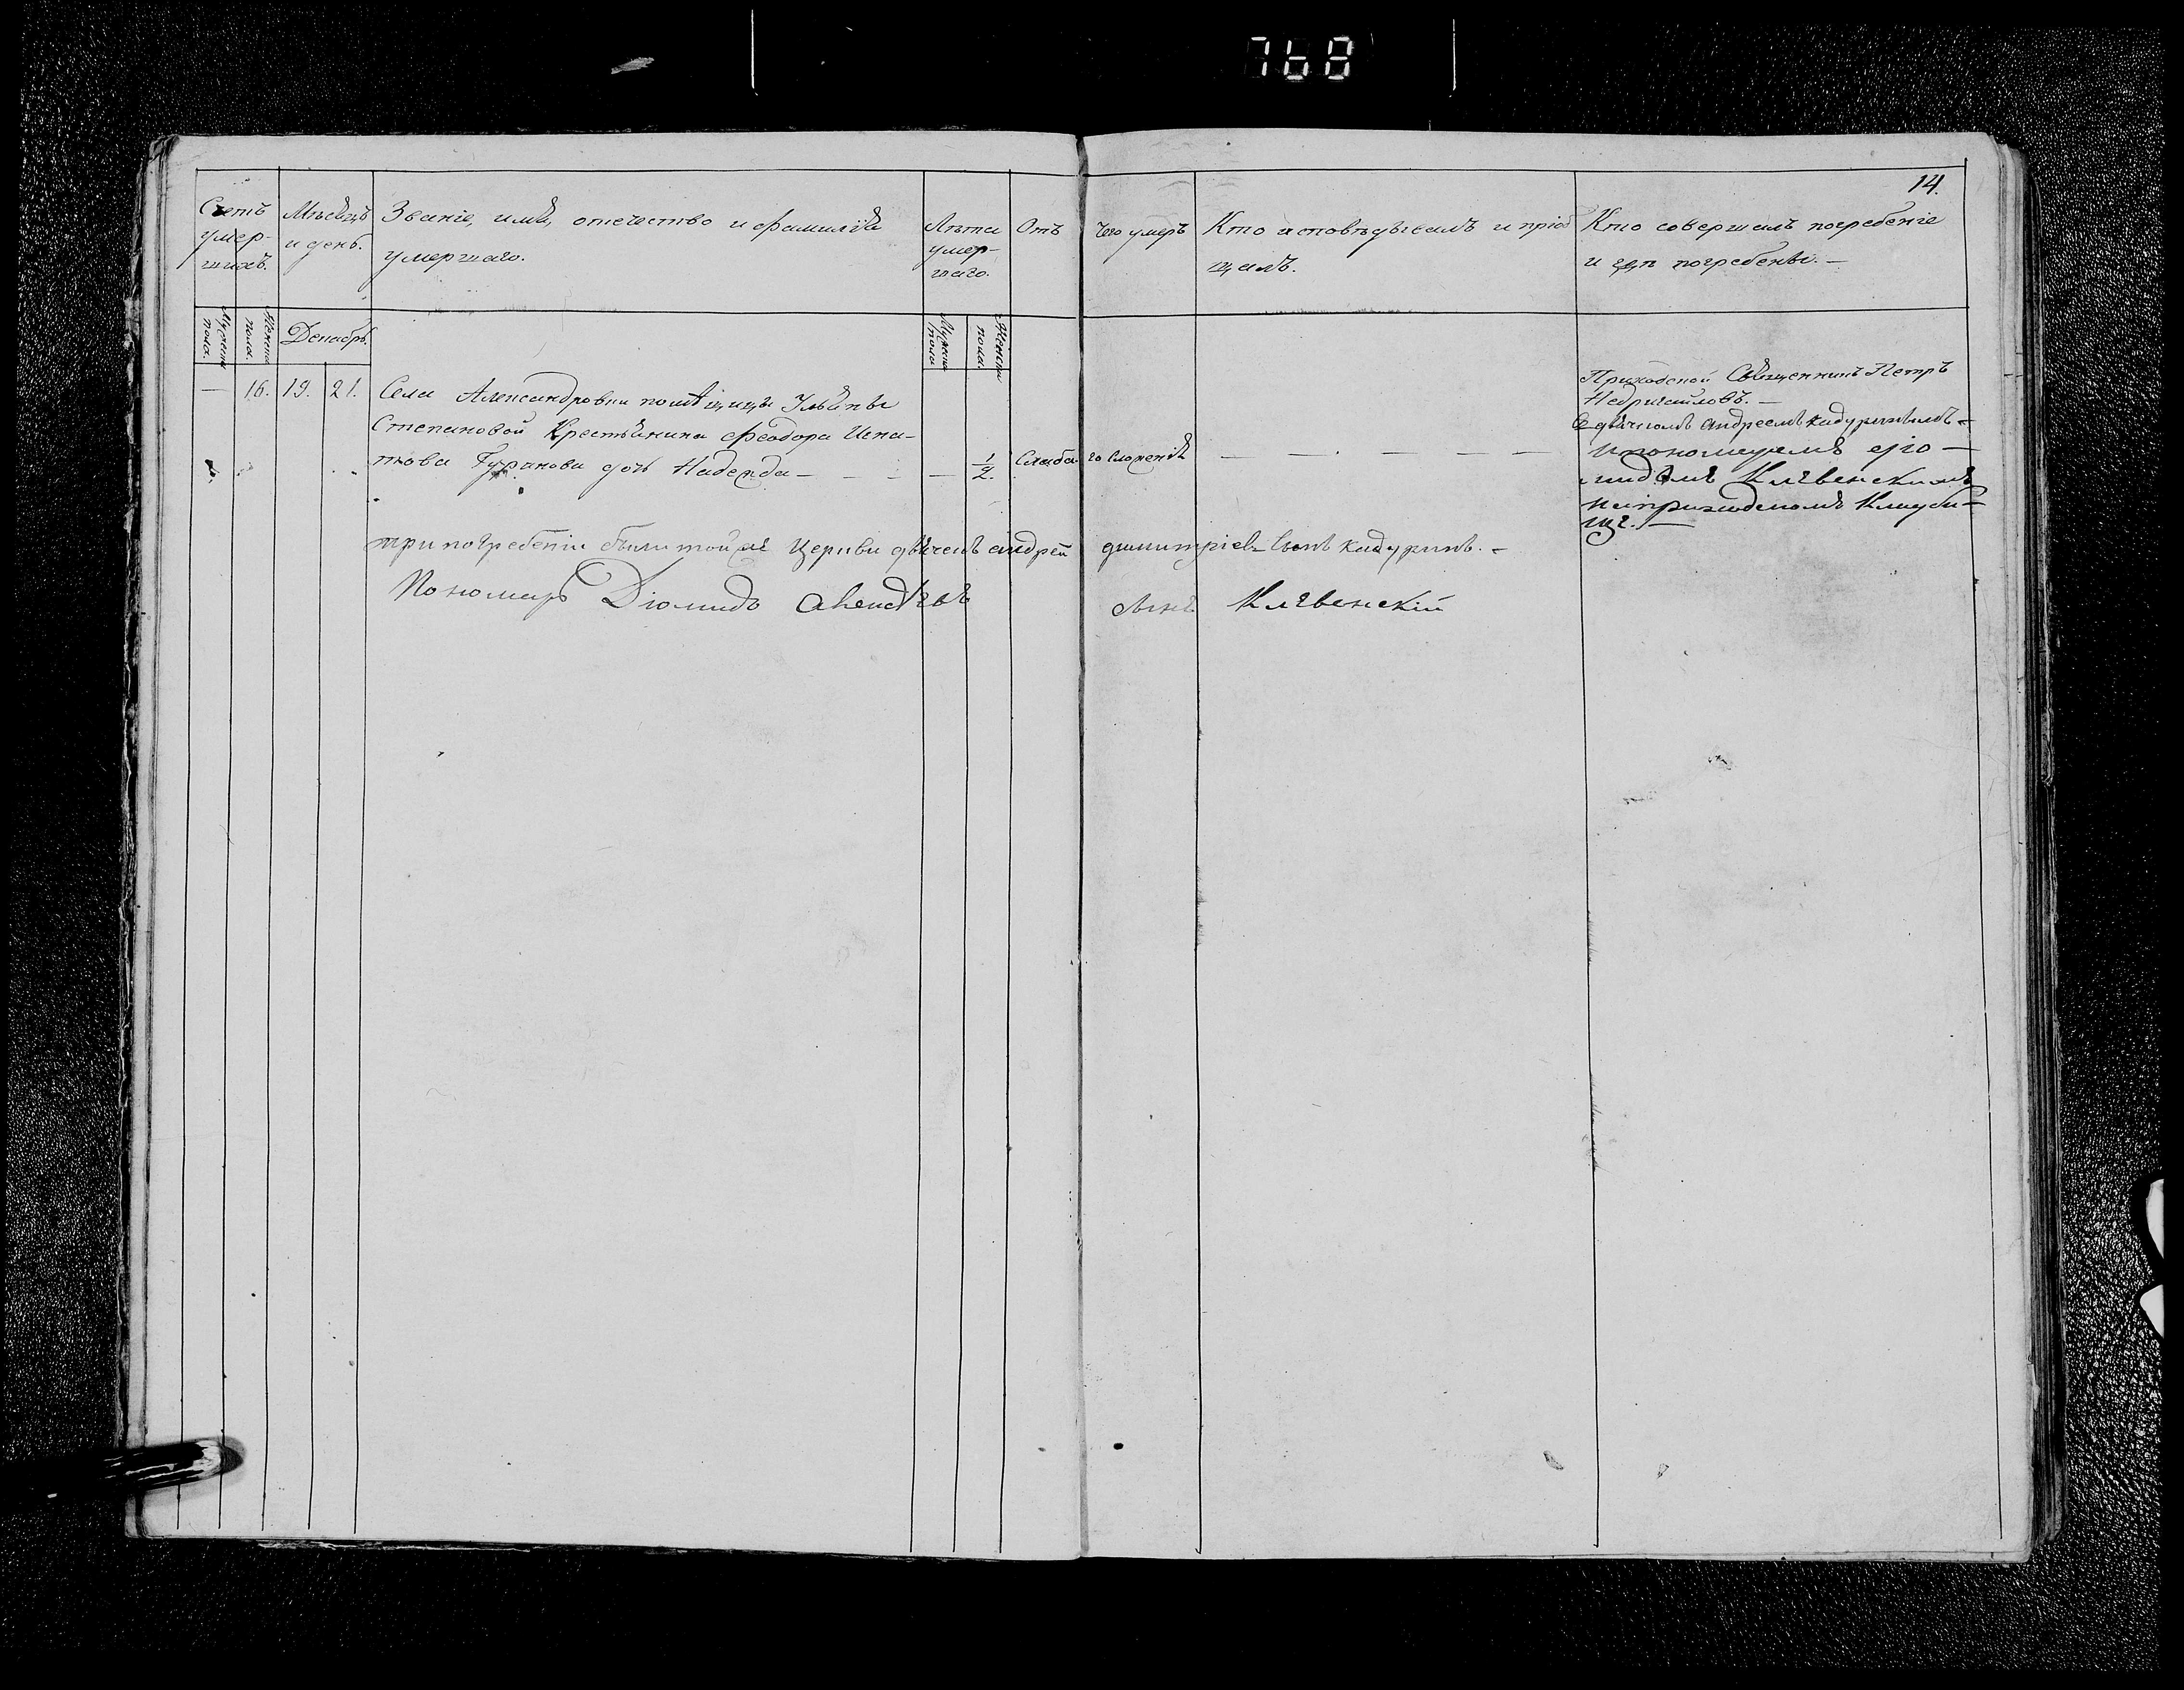 768
14.
Счетъ умер-шихъ.
Мѣсяцъ и день.
Званіе, имя, отечество и фамилія
умершаго.
Лѣта
умер-
шаго.
Отъ чего умеръ
Кто исповѣдывалъ и пріоб
щалъ.
Кто совершалъ погребеніе
и гдѣ погребены. —
Мужеска пола.
Женска пола.
Декабрь.
Мужеска пола
Женска пола.
— 16. 19. 21. Села Александровки помѣщицы Ульяны
Степановой Крестьянина Феодора Игна-
това дочь Надежда — — — — 1/2. Слабаго сложенія — — — — — —
Приходской Священникъ Петръ
Недригайловъ. —
Съ дьячкомъ Андреемъ Кадуринымъ -
и пономаремъ Діо —
мидомъ Клевенскимъ
на приходскомъ Кладби-
ще. —
при погребеніи были той же Церкви дьячекъ андрей димитріевъ сынъ Кадуринъ. -
Пономарь Діомидъ сынъ Клевенскій